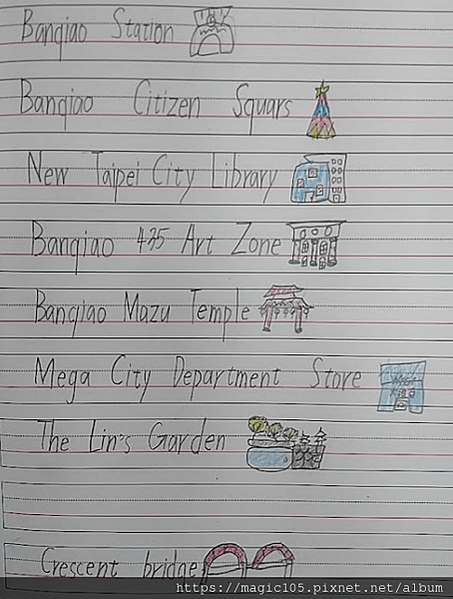 Banqiao Station
Banqiao Citizen Squars
New Taipei City Library
Banqiao 435 Art Zone
Banqiao Mazu Temple
Mega City Department Store
The Lin's Garden
Crescent bridge
https://magic105.pixnet.net/album